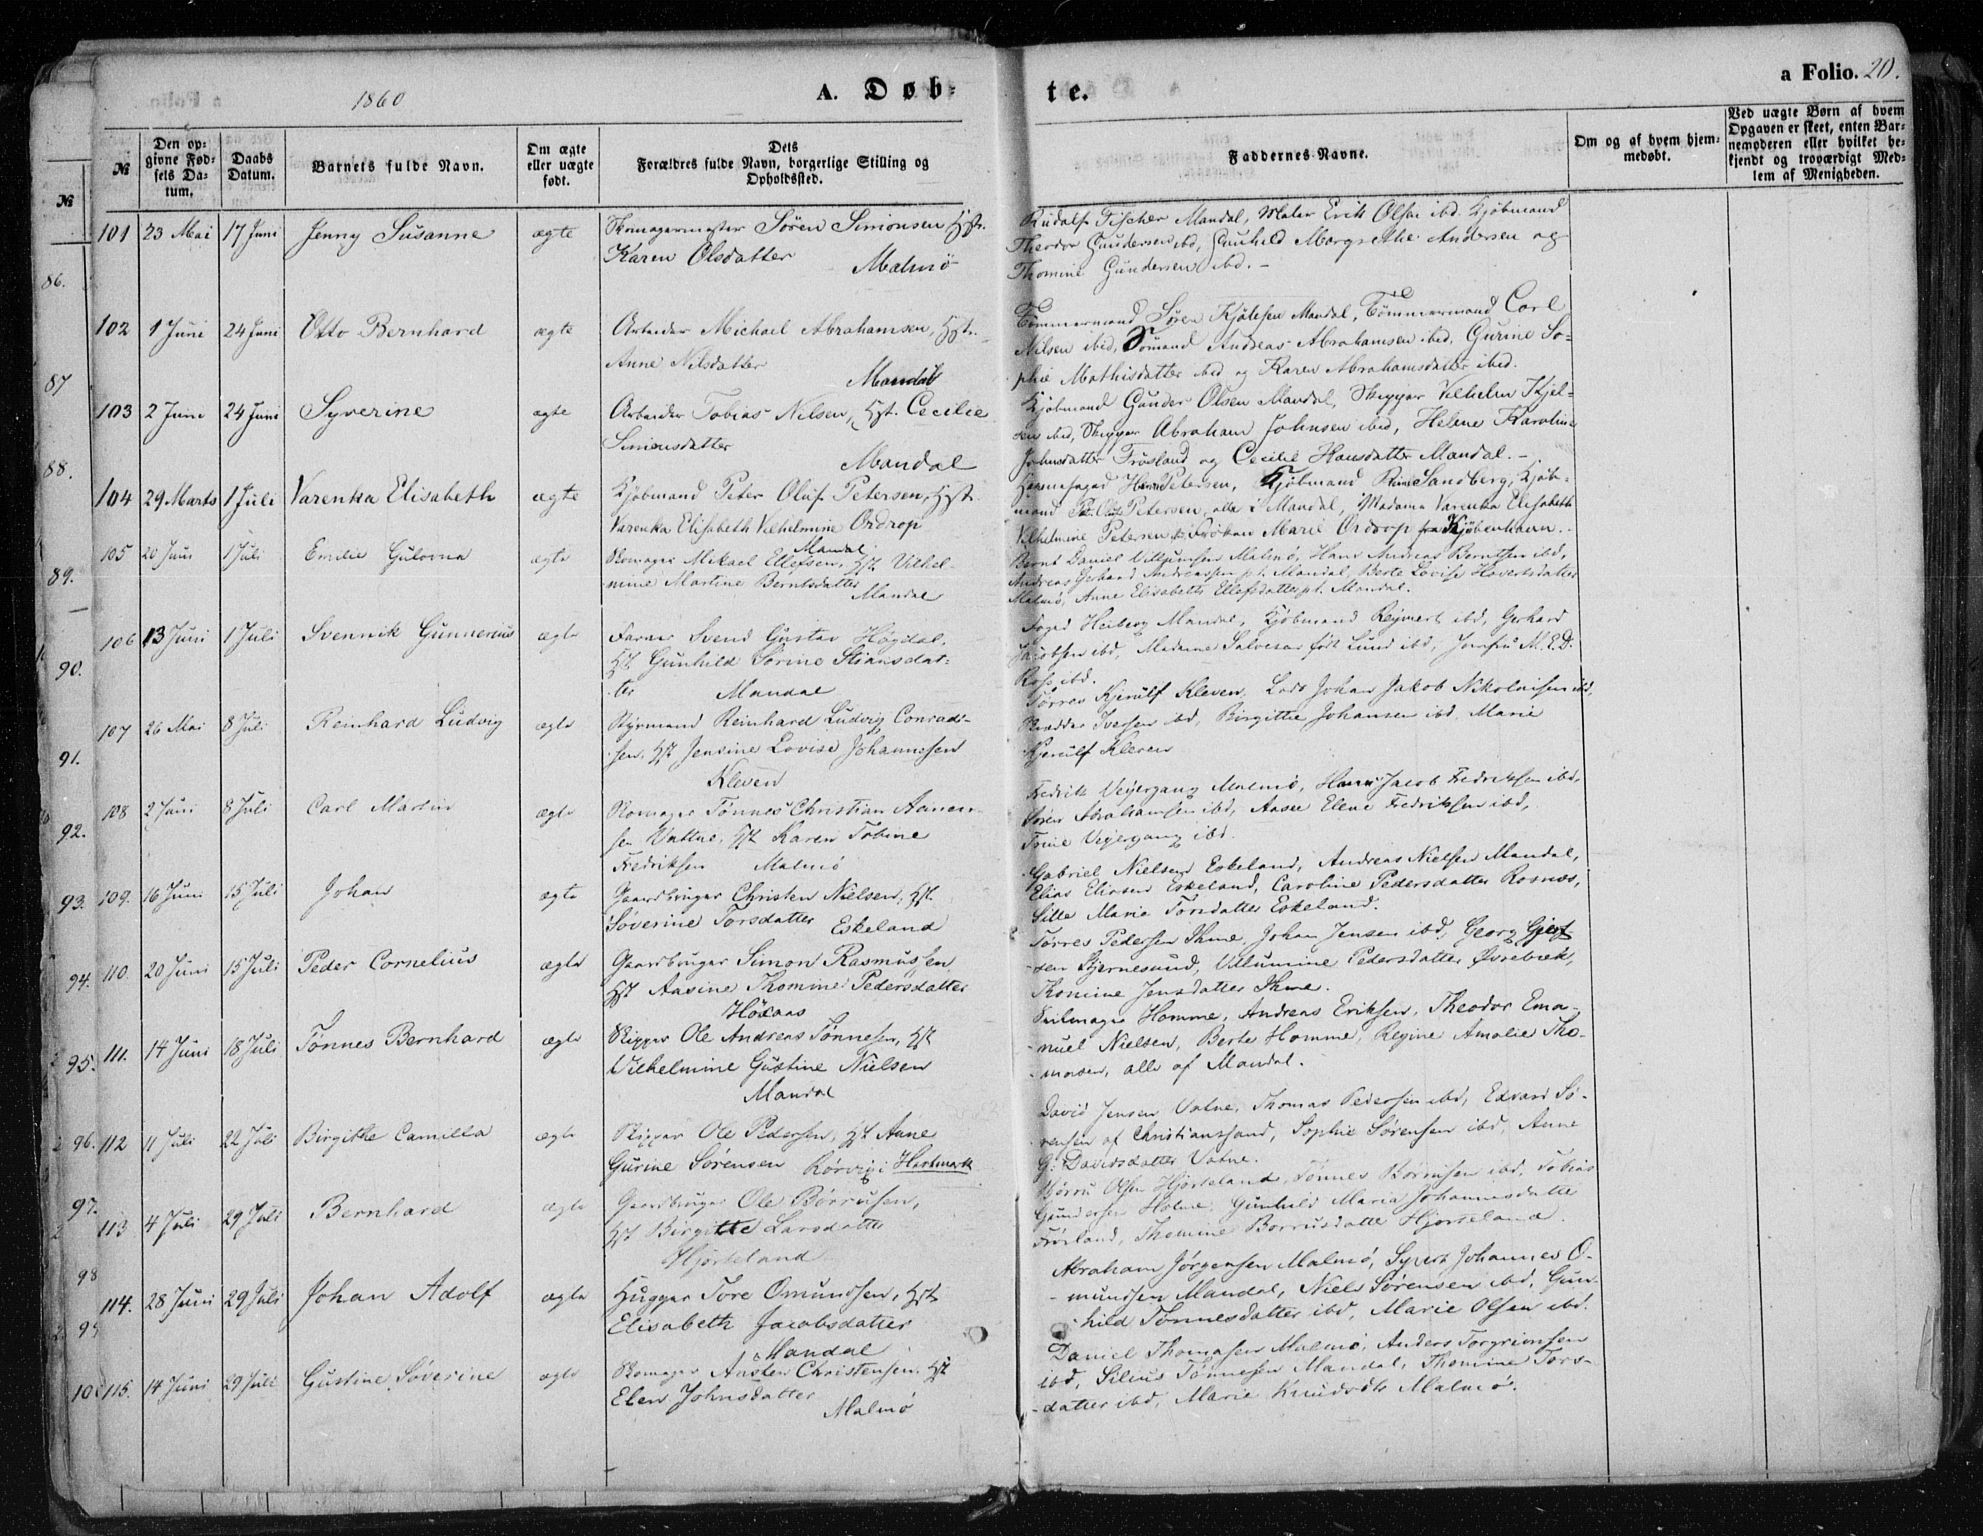 1860
A. Døb-
te.
a Folio. 20.
№
Den op-
givne Fød-
sels Da-
tum.
Daabs
Datum.
Barnets fulde Navn.
Om ægte
eller uægte
født.
Dets
Forældres fulde Navn, borgerlige Stilling og
Opholdssted.
Faddernes Navne.
Om og af hvem hjem-
medøbt.
Ved uægte Børn af hvem
Opgaven er skeet, enten Bar-
nemoderen eller hvilket be-
kjendt og troværdigt Med-
lem af Menigheden.
№
86.
87
88.
89.
90.
91.
92.
93.
94.
95.
96.
97.
98
101 23 Mai 17 Juni Jenny Susanne ægte Skomagermester Sören Simonsen, Hst.
Karen Olsdatter
Malmö
Rudolf Fischer Mandal, Maler Erik Olsen ibd. Kjöbmand
Theodor Gundersen ibd, Gunhild Margrethe Andersen og
Thomine Gundersen ibd. –
102 1 Juni 24 Juni Otto Bernhard ægte Arbeider Michael Abrahamsen, Hst.
Anne Nilsdatter
Mandal
Tömmermand Sören Kjölsen Mandal, Tömmermand Carl
Nilsen ibid, Sömand Andreas Abrahamsen ibid, Gurine So-
phie Mathisdatter ibid og Karen Abrahamsdatter ibid.
103 2 Juni 24 Juni Syverine ægte Arbeider Tobias Nilsen, Hst. Cecilie
Simonsdatter
Mandal
Kjöbmand Gunder Olsen Mandal, Skipper Vilhelm Kjel-
sen ibd, Skipper Abraham Johnsen ibid, Helene Karoline
Johnsdatter Frösland og Cecilie Hansdatter Mandal. –
104 29 Marts 1 Juli Varenka Elisabeth ægte Kjöbmand Peter Oluf Petersen, Hst.
Varenka Elisabeth Vilhelmine Ordrop
Mandal
Petersen, Kjöbmand Sandberg, Kjöb-
mand Petersen, alle i Mandal, Madame Varenka Elisabeth
Vilhelmine Petersen Fröken Marie Ordrop fra Kjöbenhavn.
105 20 Juni 1 Juli Emilie Gulovna ægte Skomager Mikael Ellefsen, Hst. Vilhel-
mine Martine Berntsdatter
Mandal
Bernt Daniel Villumsen Malmö, Hans Andreas Berntsen ibd,
Andreas Gerhard Andreassen pt. Mandal, Berte Lovise Hovertsdatter
Malmö, Anne Elisabeth Ellefsdatter pt. Mandal.
106 13 Juni 1 Juli Svennik Gunnerius ægte Farver Svend Gustav Högdal,
Hst Gunhild Serine Stiansdat-
ter Mandal
Foged Heiberg Mandal, Kjöbmand Reymert ibd, Gerhard
Jacobsen ibd, Madame Salvesen födt Lund ibd, Jomfru M. E. D.
Ross ibd.
107 26 Mai 8 Juli Reinhard Ludvig ægte Styrmand Reinhard Ludvig Conrad-
sen, Hst Jensine Lovise Johannesen
Kleven
Törres Kjerulf Kleven, Lods Johan Jakob Nikolaisen ibd,
Skrædder Iversen ibd, Birgitte Johansen ibd, Marie
Kjerulf Kleven
108 2 Juni 8 Juli Carl Martin ægte Skomager Tönnes Christian Aanen-
sen Vattne, Hst Karen Tobine
Fredriksen Malmö
Fredrik Veiergang Malmö, Hans Jacob Fredriksen ibd,
Sören Abrahamsen ibd, Aase Elene Fredriksen ibd,
Trine Veiergang ibd.
109. 16 Juni 15 Juli Johan ægte Gaardbruger Christen Nielsen, Hst.
Söverine Torsdatter Eskeland
Gabriel Nielsen Eskeland, Andreas Nielsen Mandal,
Elias Eliasen Eskeland, Caroline Pedersdatter Rosnæs,
Sille Marie Torsdatter Eskeland.
110. 20 Juni 15 Juli Peder Cornelius ægte Gaardbruger Simon Rasmussen
Hst Aasine Thomine Pedersdatter
Höiaas
Törres Pedersen Skme, Johan Jensen ibd, Georg Gjert-
sen Stjernesund, Villumine Pedersdatter Övrebæk,
Thomine Jensdatter Skme.
111. 14 Juni 18 Juli Tönnes Bernhard ægte Skipper Ole Andreas Tönnesen, Hst
Vilhelmine Gustine Nielsen
Mandal
Seilmager Homme, Andreas Eriksen, Theodor Ema-
nuel Nielsen, Berte Homme, Regine Amalie Tho-
masen, alle af Mandal.
112 11 Juli 22 Juli Birgithe Camilla ægte Skipper Ole Pedersen, Hst Anne
Gurine Sörensen Rörvig i Hartmark
David Jensen Vatne, Thomas Pedersen ibd, Edvard Sö-
rensen af Christianssand, Sophie Sörensen ibd, Anne
G: Davidsdatter Vatne.
113 4 Juli 29 Juli Bernhard ægte Gaardbruger Ole Börrusen,
Hst Birgitte Larsdatter
Hjorteland
Börru Olsen Hjorteland, Tönnes Börrusen ibd, Tobias
Gundersen Holme, Gunhild Maria Johannesdatter
Frösland, Thomine Borrusdatter Hjorteland.
114. 28 Juni 29 Juli Johan Adolf ægte Hugger Tore Omundsen, Hst
Elisabeth Jacobsdatter
Mandal
Abraham Jörgensen Malmö, Syvert Johannes O-
mundsen Mandal, Niels Sörensen ibd, Gun-
hild Tönnesdatter ibd, Marie Olsen ibd.
115. 14 Juni 29 Juli Gustine Söverine ægte Skomager Ansten Christensen, Hst
Elen Johnsdatter
Malmö
Daniel Thomasen Malmö, Anders Torgrimsen
ibd, Silius Tönnesen Mandal, Thomine Tors-
datter ibd, Marie Knudsdtr Malmö.